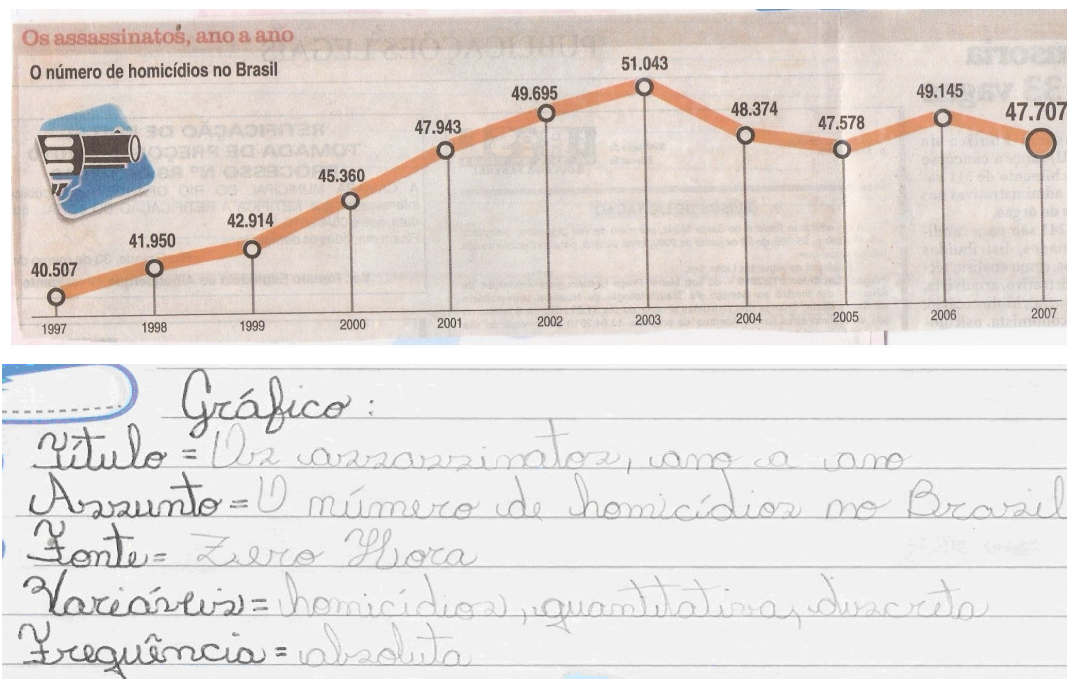 Os assassinatos, ano a ano
O número de homicídios no Brasil
40.507
41.950
42.914
45.360
47.943
49.695
51.043
48.374
47.578
49.145
47.707
1997 1998 1999 2000 2001 2002 2003 2004 2005 2006 2007
Gráfico:
Título = Os assassinatos, ano a ano
Assunto = O número de homicídios no Brasil
Fonte = Zero Hora
Variáveis = homicídios, quantitativa, discreta
Frequência = absoluta